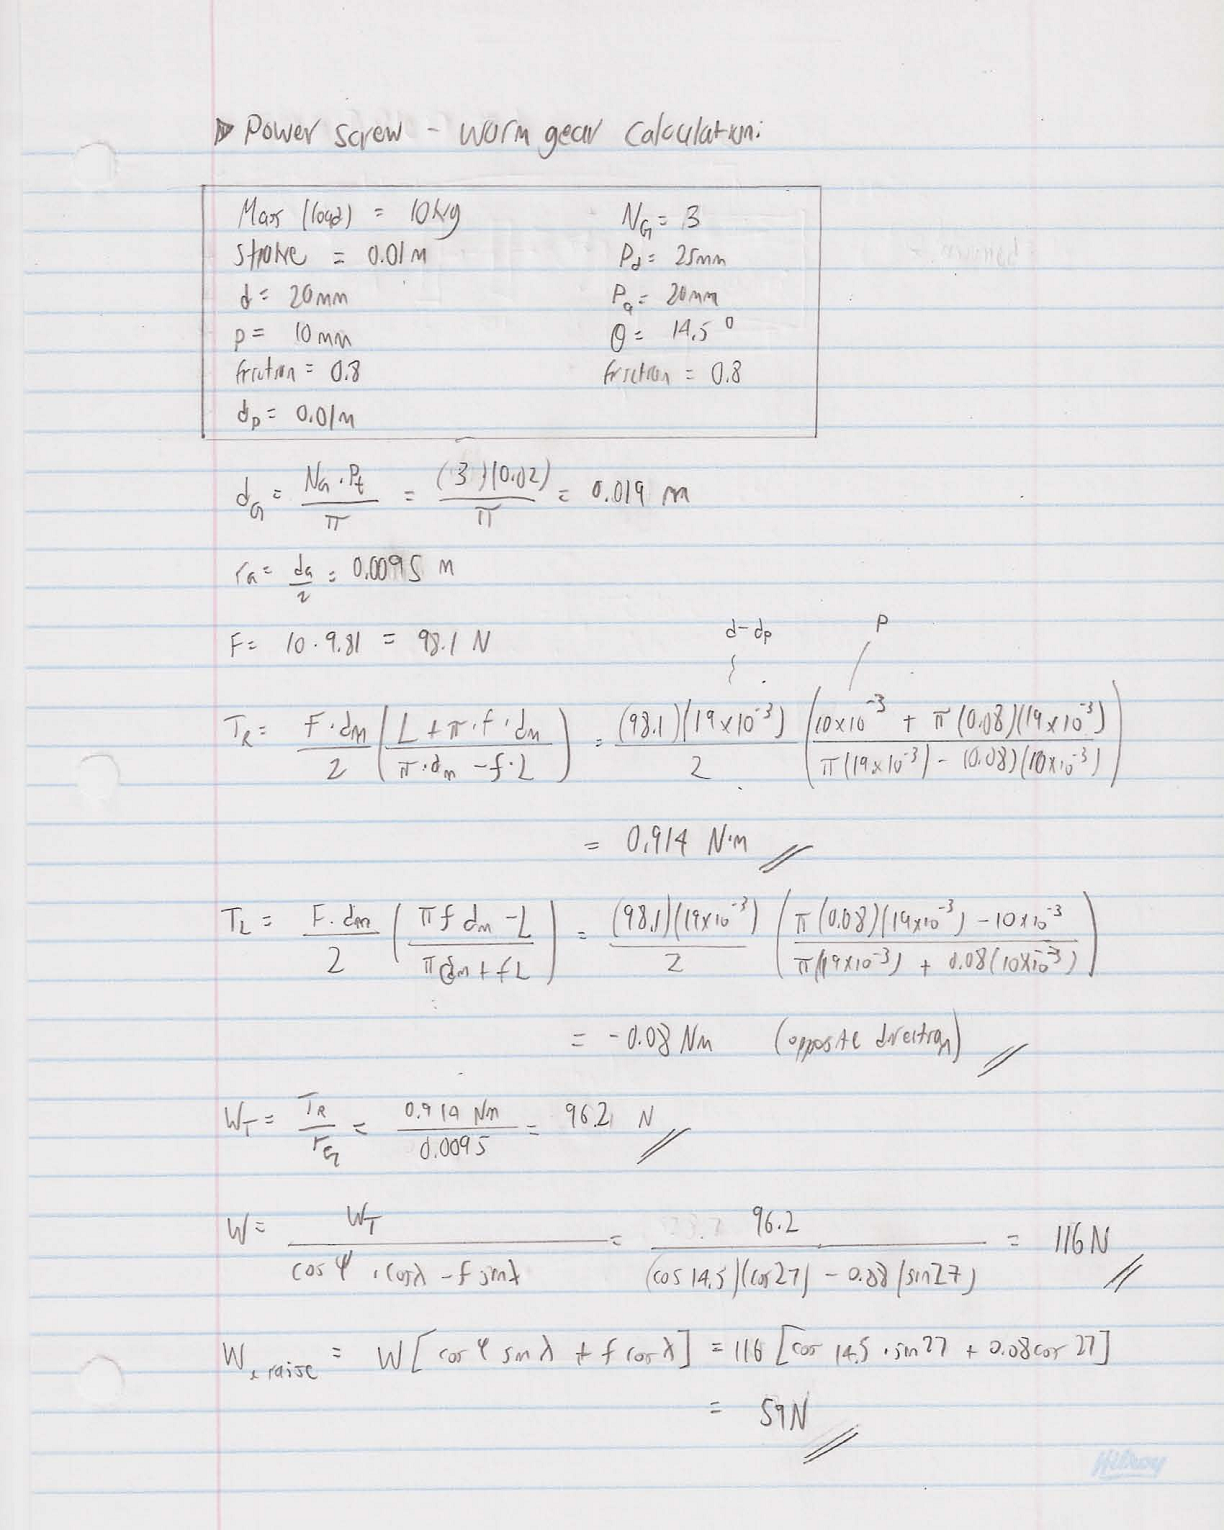 ▷ Power screw - worm gear calculation:
Max (load) = 10 kg    N_G = 3
Stroke = 0.01 m    P_d = 25mm
d = 20mm    P_a = 20mm
p = 10 mm    θ = 14.5°
friction = 0.8    friction = 0.8
d_p = 0.01m
d_G = N_G · P_t / π = (3)(0.02) / π = 0.019 m
r_G = d_G / 2 = 0.0095 m
d-d_p    P
F = 10 · 9.81 = 98.1 N
T_R = F · d_m / 2 ( L + π · f · d_m / π · d_m - f · L ) = (98.1)(19x10^-3) / 2 ( 10x10^-3 + π(0.08)(19x10^-3) / π(19x10^-3) - (0.08)(10x10^-3) )
= 0.914 N·m
T_L = F · d_m / 2 ( π f d_m - L / π d_m + f L ) = (98.1)(19x10^-3) / 2 ( π(0.08)(19x10^-3) - 10x10^-3 / π(19x10^-3) + 0.08(10x10^-3) )
= -0.08 Nm (opposite direction)
W_T = T_R / r_G = 0.914 Nm / 0.0095 = 96.2 N
W = W_T / cos φ · cos λ - f sin λ = 96.2 / (cos 14.5)(cos 27) - 0.08(sin 27) = 116 N
W_x raise = W [cos φ sin λ + f cos λ] = 116 [cos 14.5 · sin 27 + 0.08 cos 27]
= 59 N
Hilroy